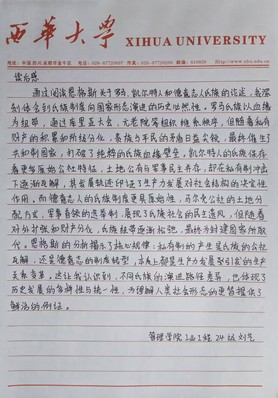 西华大学 XIHUA UNIVERSITY
地址:中国.四川.成都市金牛区 电话:028-87720007 传真:028-87720200 邮编:610039 Http://www.xhu.edu.cn
读后感
通过阅读恩格斯关于罗马、凯尔特人和德意志人氏族的论述,我深
刻体会到氏族制度向国家形态演进的历史必然性。罗马氏族以血缘
为纽带,通过库里亚大会、元老院等组织维系秩序,但随着私有
财产的积累和阶级分化,贵族与平民的矛盾日益尖锐,最终催生了
共和制国家,打破了纯粹的血缘壁垒。凯尔特人的氏族保存
着更多原始公社特征,土地公有与军事民主并存,却在私有制冲击
下逐渐瓦解,其发展轨迹印证了生产力发展对社会结构的决定性
作用。而德意志人的氏族制度更具原始性,马尔克公社的土地分
配方式、军事首领的选举制,展现了氏族社会的民主遗风,但随着
对外扩张和财产分化,氏族纽带逐渐松弛,最终为封建国家所取
代。恩格斯的分析揭示了核心规律:私有制的产生是氏族的公社
瓦解,还是德意志的制度转型,本质上都是生产力发展引发的生产
关系变革。这让我认识到,不同氏族的演进路径虽异,却体现了
历史发展的多样性与统一性,为理解人类社会形态的更替提供了
鲜活的例证。
管理学院 工商1班 24级 刘